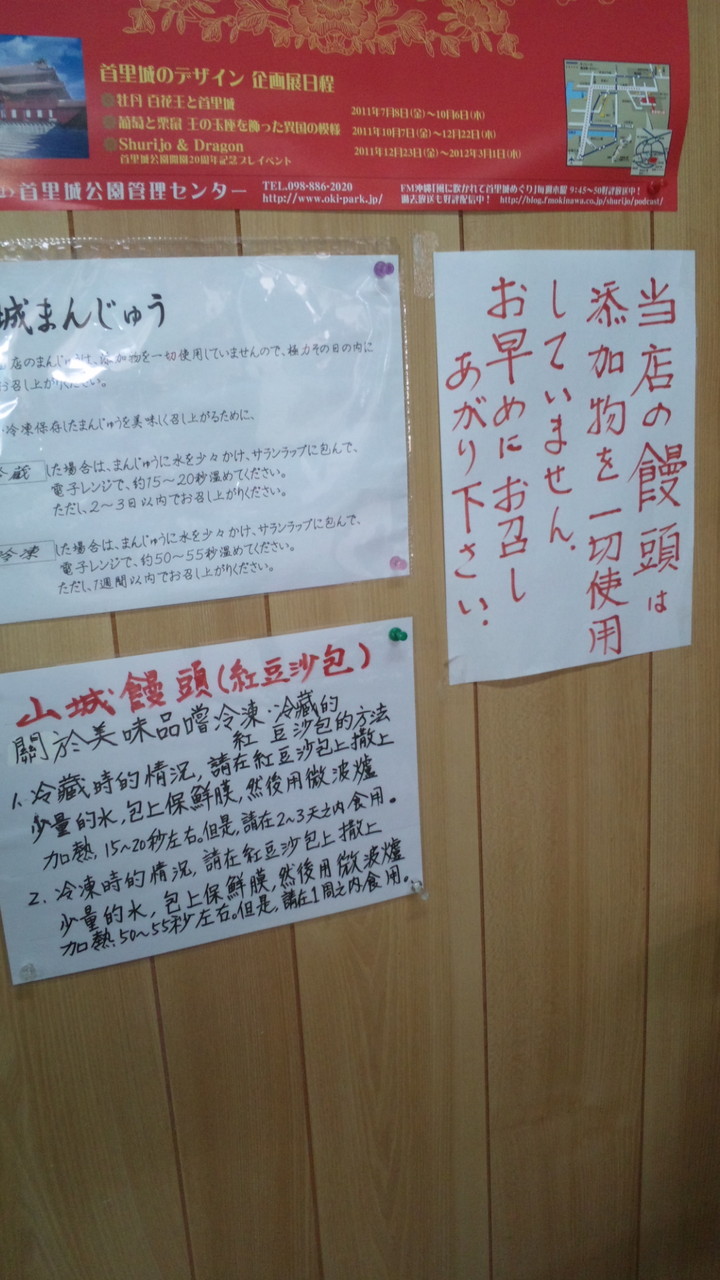 首里城のデザイン 企画展日程
牡丹 百花王と首里城 2011年7月8日(金)〜10月6日(木)
葡萄と栗鼠 王の玉座を飾った異国の模様 2011年10月7日(金)〜12月22日(木)
Shurijo & Dragon 2011年12月23日(金)〜2012年3月1日(木)
首里城公園開園20周年記念プレイベント
首里城公園管理センター
TEL.098-886-2020
http://www.oki-park.jp/
FM沖縄「風に吹かれて首里城めぐり」毎週水曜 9:45〜50好評放送中!
過去放送も好評配信中! http://blog.fmokinawa.co.jp/shurijo/podcast/
城まんじゅう
店のまんじゅうは、添加物を一切使用していませんので、極力その日の内に
お召し上がりください。
冷凍保存したまんじゅうを美味しく召し上がるために、
冷蔵 した場合は、まんじゅうに水を少々かけ、サランラップに包んで、
電子レンジで、約15〜20秒温めてください。
ただし、2〜3日以内でお召し上がりください。
冷凍 した場合は、まんじゅうに水を少々かけ、サランラップに包んで、
電子レンジで、約50〜55秒温めてください。
ただし、1週間以内でお召し上がりください。
当店の饅頭は
添加物を一切使用
していません。
お早めにお召し
あがり下さい。
山城饅頭(紅豆沙包)
關於美味品嚐冷凍·冷藏的
紅豆沙包的方法
1. 冷藏時的情況,請在紅豆沙包上撒上
少量的水,包上保鮮膜,然後用微波爐
加熱,15~20秒左右。但是,請在2~3天之内食用。
2. 冷凍時的情況,請在紅豆沙包上撒上
少量的水,包上保鮮膜,然後用微波爐
加熱,50~55秒左右。但是,請在1周之内食用。